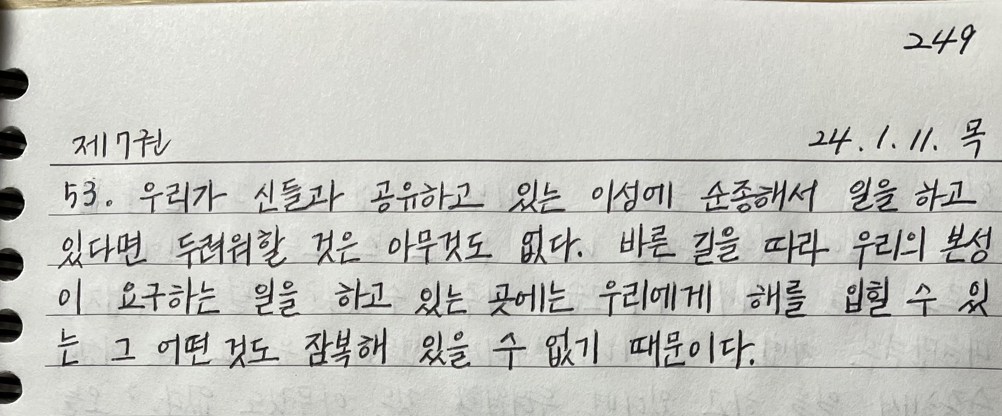 249
제7권 24.1.11. 목
53. 우리가 신들과 공유하고 있는 이성에 순종해서 일을 하고
있다면 두려워할 것은 아무것도 없다. 바른 길을 따라 우리의 본성
이 요구하는 일을 하고 있는 곳에는 우리에게 해를 입힐 수 있
는 그 어떤 것도 잠복해 있을 수 없기 때문이다.